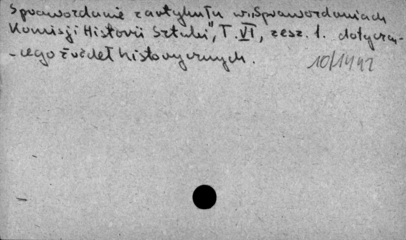 Sprawozdanie z artykułu w: Sprawozdaniach
Komisji Historii Sztuki, T. VI, zesz. 1. dotyczą-
-cego źródeł historycznych.
10/1442